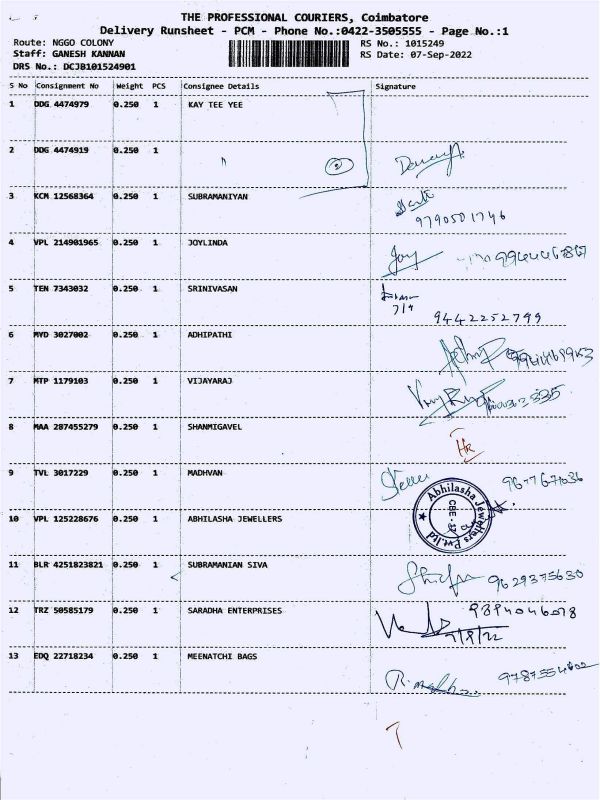 THE PROFESSIONAL COURIERS, Coimbatore
Delivery Runsheet - PCM - Phone No.:0422-3505555 - Page No.:1
Route: NGGO COLONY RS No.: 1015249
Staff: GANESH KANNAN RS Date: 07-Sep-2022
DRS No.: DCJB101524901
S No Consignment No Weight PCS Consignee Details Signature
1 DDG 4474979 0.250 1 KAY TEE YEE
2 DDG 4474919 0.250 1 2
3 KCM 12568364 0.250 1 SUBRAMANIYAN
9790501746
4 VPL 214901965 0.250 1 JOYLINDA Joy
5 TEN 7343032 0.250 1 SRINIVASAN
7/9
9442252799
6 MYD 3027002 0.250 1 ADHIPATHI
7 MTP 1179103 0.250 1 VIJAYARAJ
8 MAA 287455279 0.250 1 SHANMIGAVEL
9 TVL 3017229 0.250 1 MADHVAN
Abhilasha Jewellers Pvt Ltd
CBE
10 VPL 125228676 0.250 1 ABHILASHA JEWELLERS
11 BLR 4251823821 0.250 1 SUBRAMANIAN SIVA
9629375630
12 TRZ 50585179 0.250 1 SARADHA ENTERPRISES
9894046078
7/9/22
13 EDQ 22718234 0.250 1 MEENATCHI BAGS